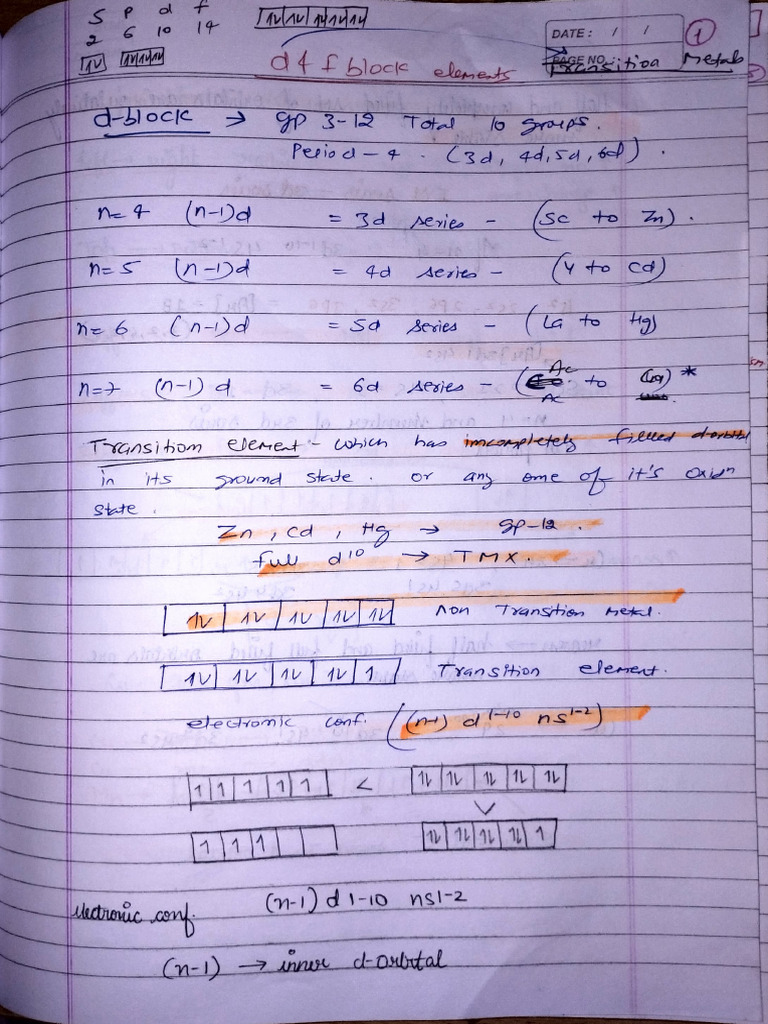 S P d f
2 6 10 14
DATE: / /
PAGE NO.
1
d & f block elements
Transition Metals
d-block → gp 3-12 Total 10 groups.
Period - 4 . (3d, 4d, 5d, 6d) .
n=4 (n-1)d = 3d series - (Sc to Zn) .
n=5 (n-1)d = 4d series - (Y to Cd)
n=6 (n-1)d = 5d series - (La to Hg)
Ac
n=7 (n-1)d = 6d series - ( to (Cn) *
Ac
Transition element - which has incompletely filled d-orbital
in its ground state . or any one of it's oxidn
state .
Zn, Cd, Hg → gp-12 .
full d10 → TMX .
1L 1L 1L 1L 1L Non Transition Metal.
1L 1L 1L 1L 1 Transition element.
electronic conf. ((n-1) d1-10 ns1-2)
1 1 1 1 1 < 1L 1L 1L 1L 1L
1 1 1 1L 1L 1L 1L 1
electronic conf. (n-1) d 1-10 ns1-2
(n-1) → inner d-orbital